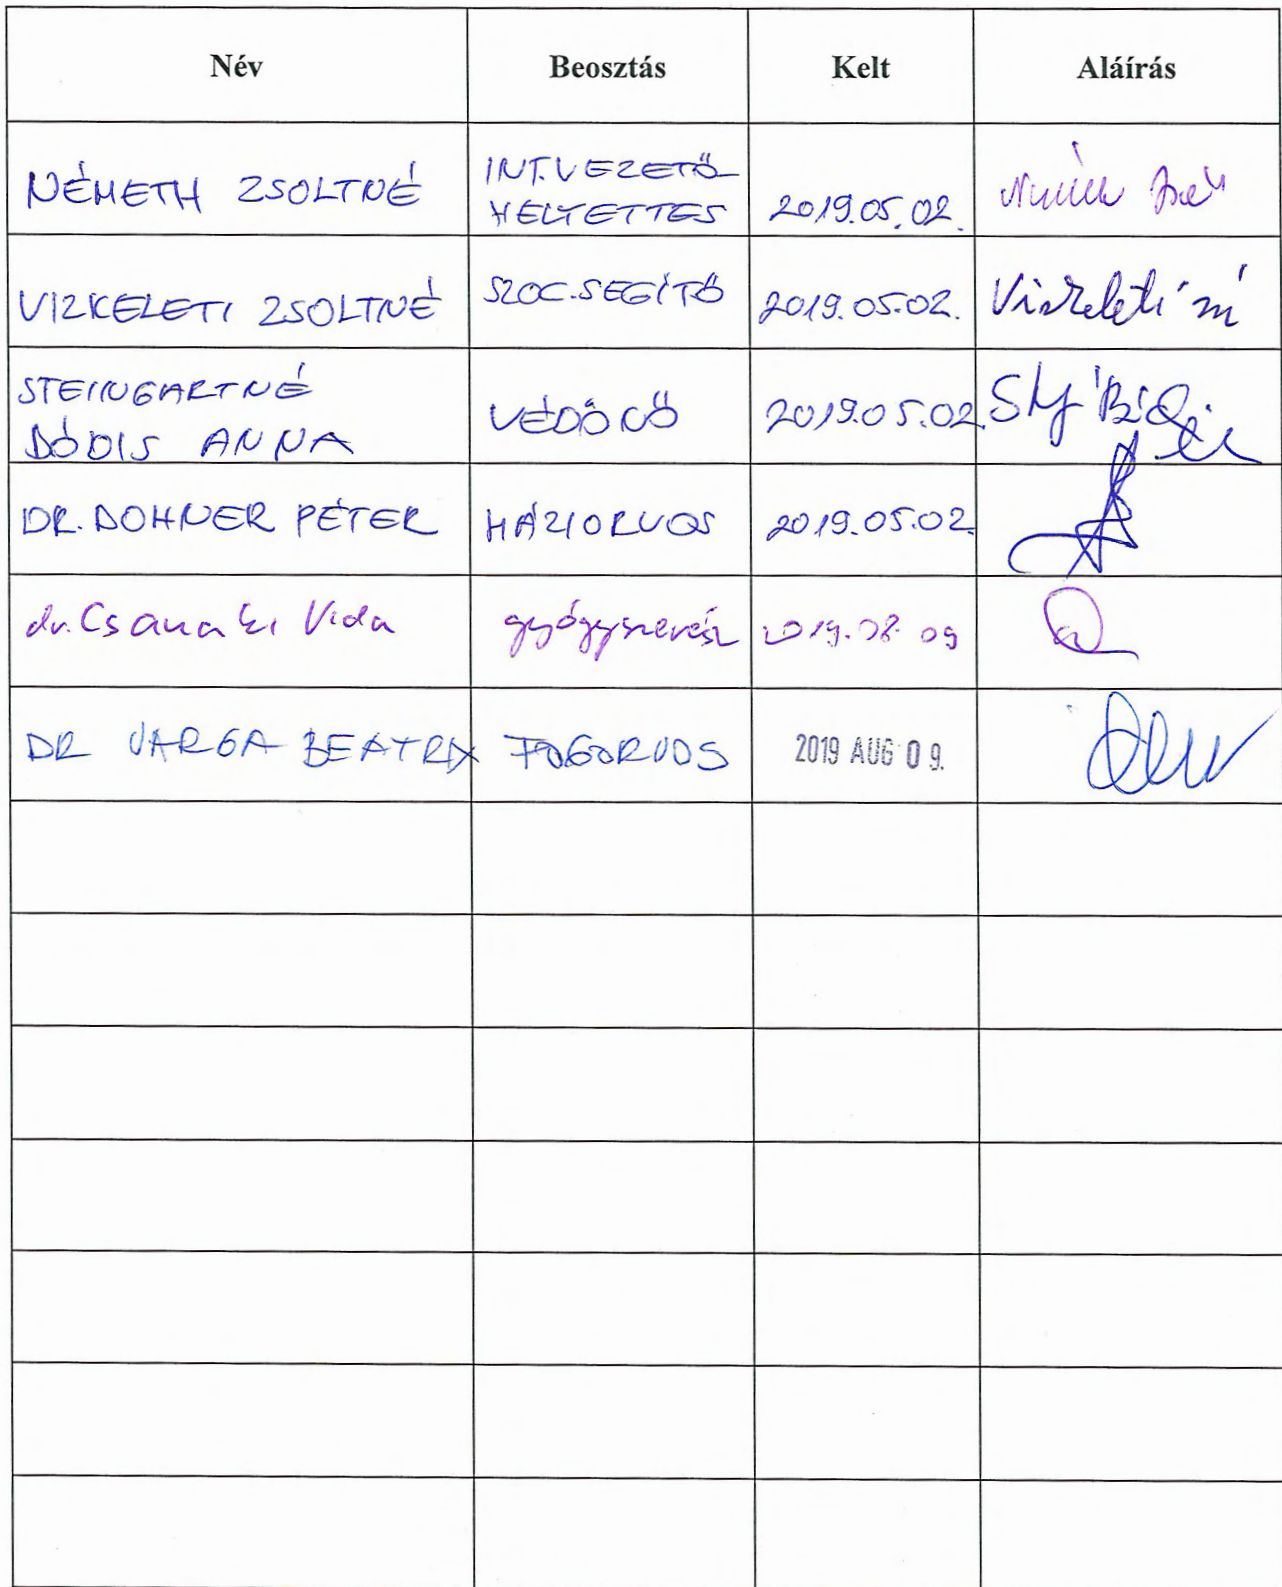 Név Beosztás Kelt Aláírás
NÉMETH ZSOLTNÉ INT.VEZETŐ- HELYETTES 2019.05.02.
VIZKELETI ZSOLTNÉ SZOC.SEGÍTŐ 2019.05.02. Vizkeleti né
STEINGARTNÉ
DÓDIS ANNA VÉDŐNŐ 2019.05.02
DR. DOHNER PÉTER HÁZIORVOS 2019.05.02.
dr. Csanaki Vida gyógyszerész 2019.08.09
DR VARGA BEATRIX FOGORVOS 2019 AUG 09.